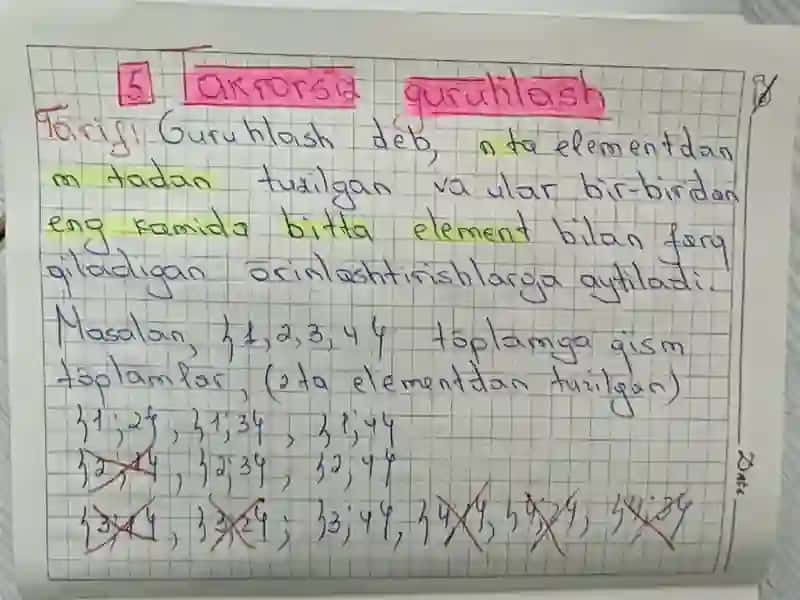 5 Takrorsiz guruhlash
Ta'rif: Guruhlash deb, n ta elementdan
m tadan tuzilgan va ular bir-birdan
eng kamida bitta element bilan farq
qiladigan o'rinlashtirishlarga aytiladi.
Masalan, {1,2,3,4} to'plamga qism
to'plamlar, (2ta elementdan tuzilgan)
{1;2}, {1;3}, {1;4}
{2;1}, {2;3}, {2;4}
{3;1}, {3;2}; {3;4}, {4;1}, {4;2}, {4;3}
Date